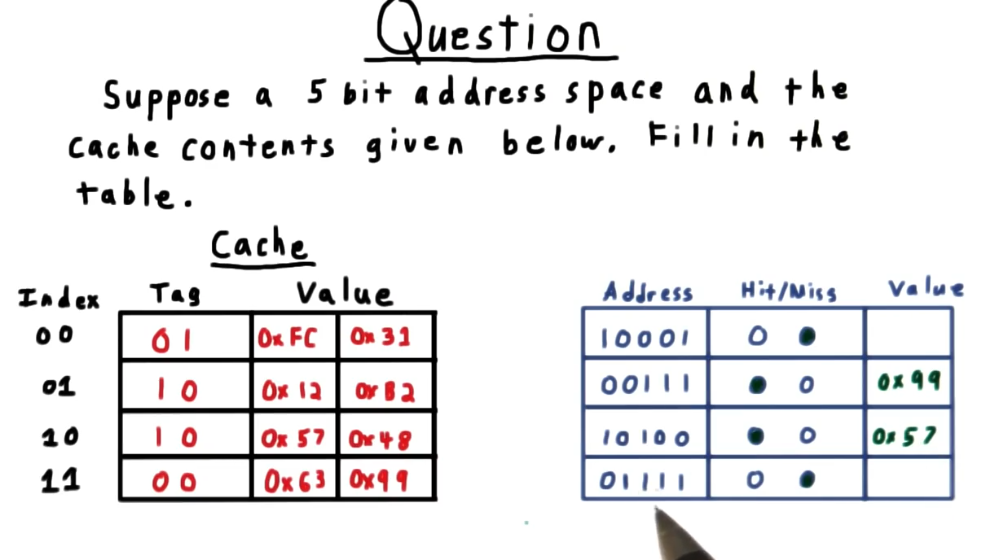 Question
Suppose a 5 bit address space and the
cache contents given below. Fill in the
table.
Cache
Index Tag Value
00 01 0xFC 0x31
01 10 0x12 0x82
10 10 0x57 0x48
11 00 0x63 0x99
Address Hit/Miss Value
10001
00111 0x99
10100 0x57
01111